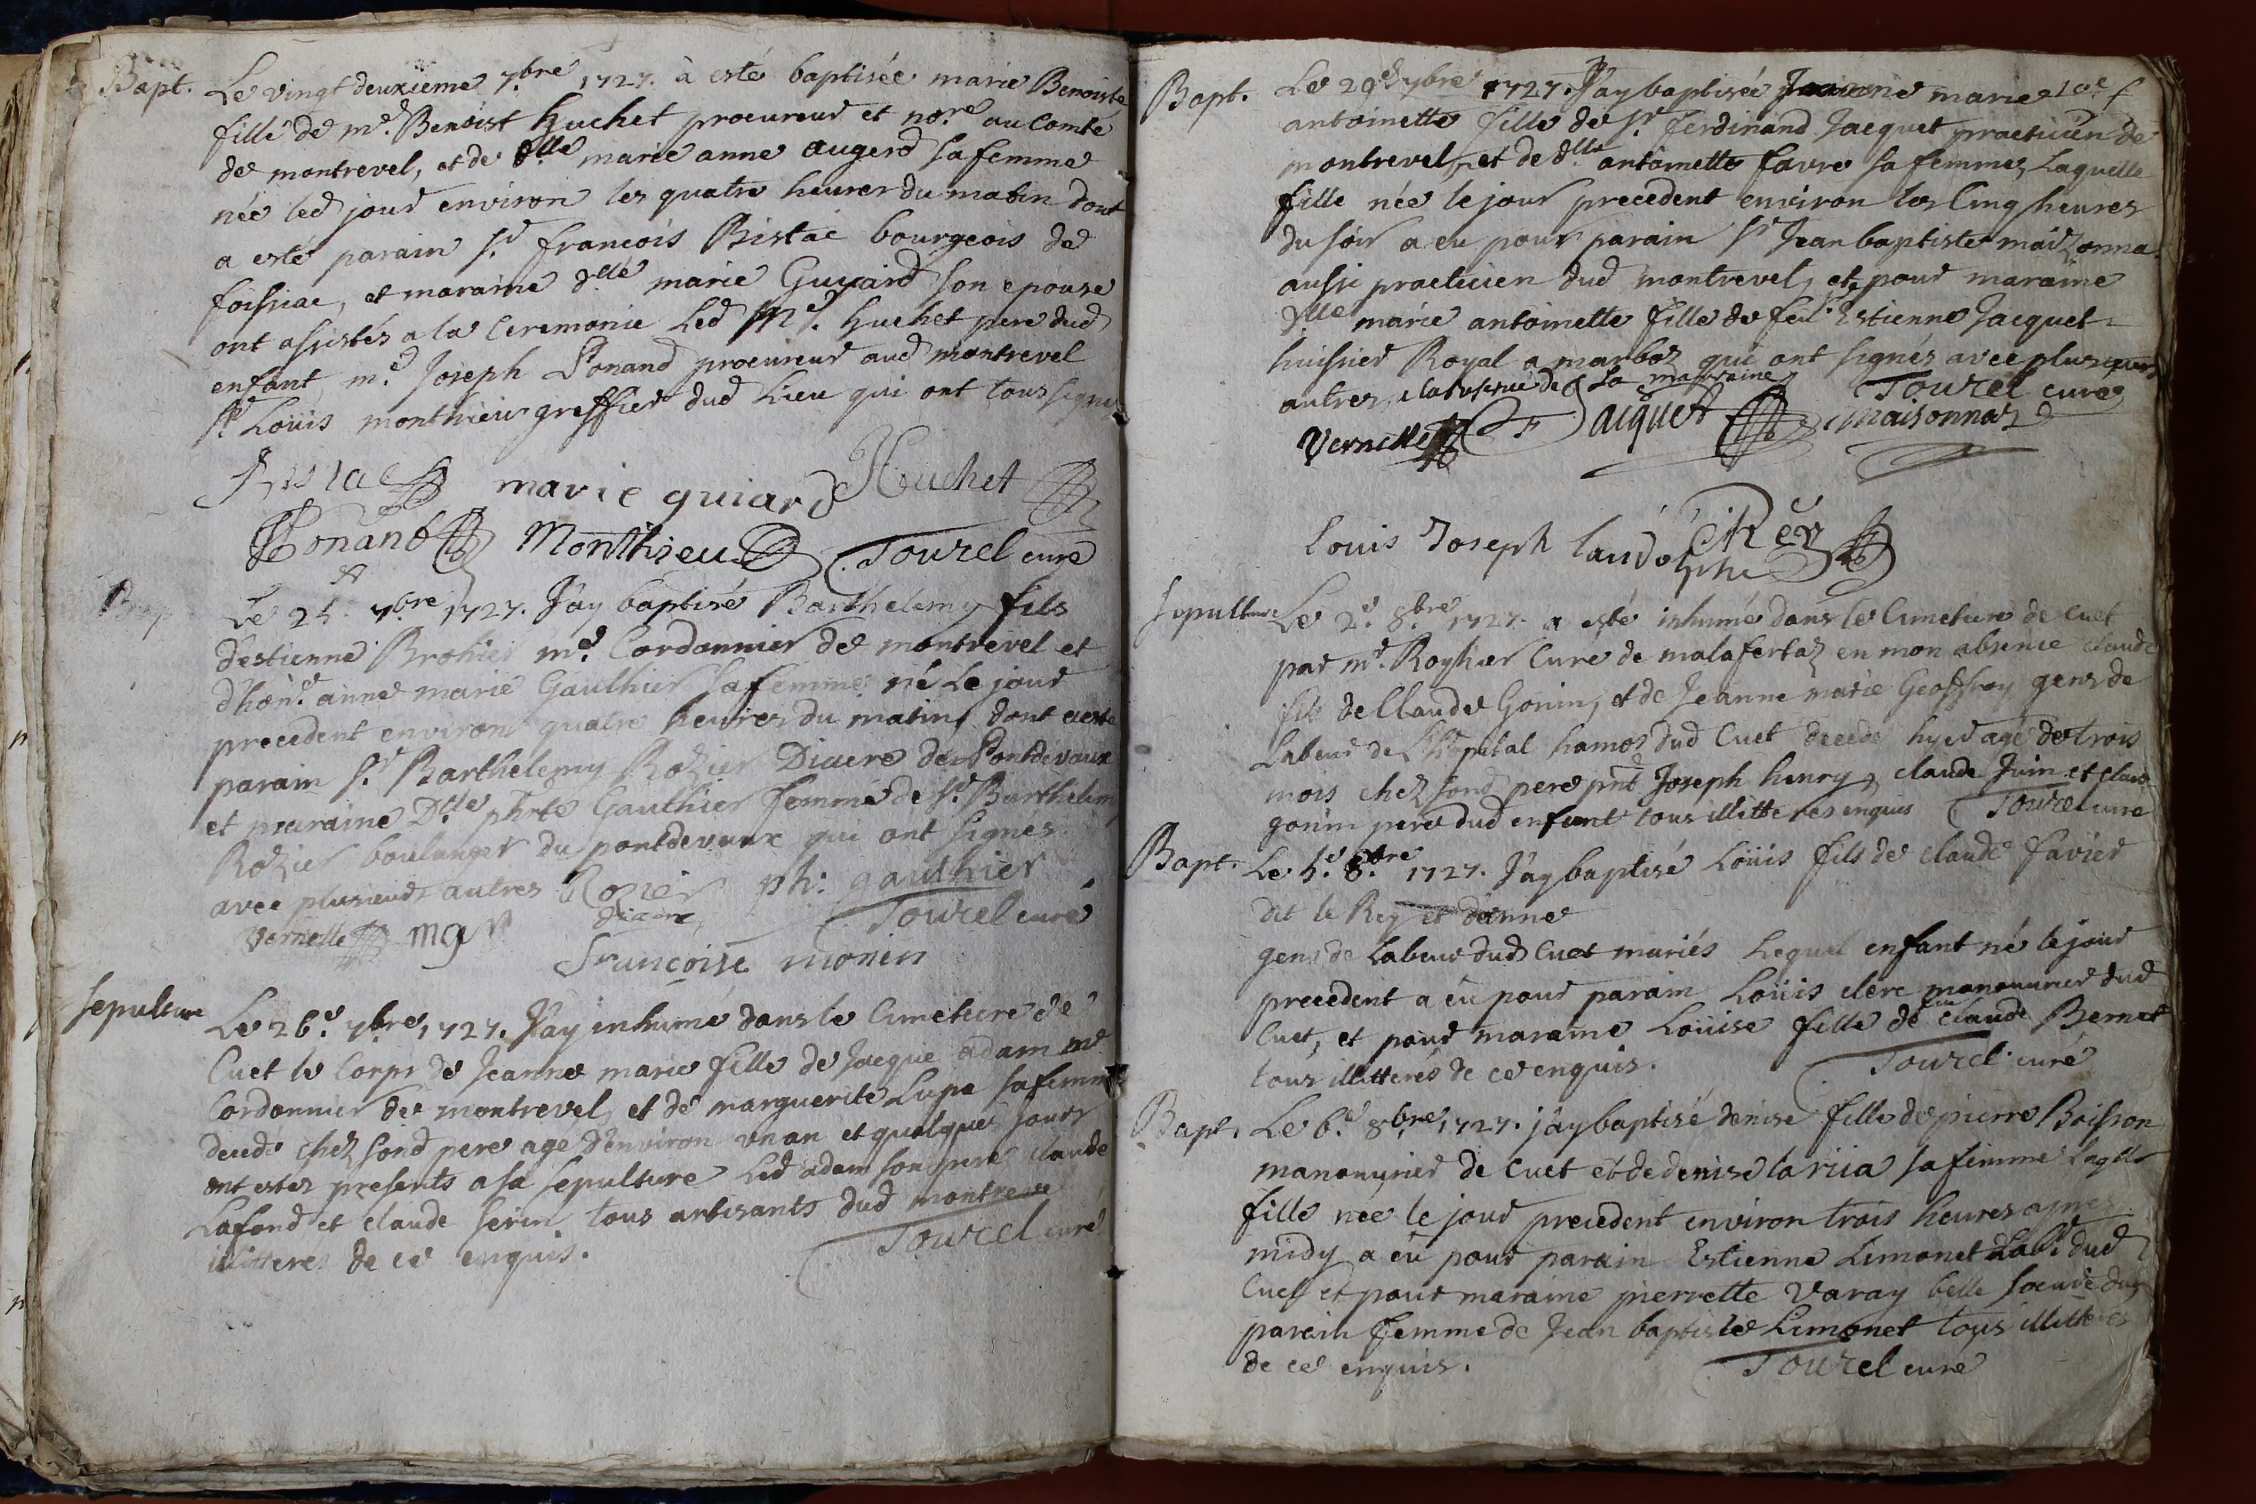 Bapt. Le vingt deuxieme 7.bre 1727. à esté baptisée marie Benoiste
fille de me. Benoist Huchet procureur et no.re au Comté
de montrevel, et de d.lle marie anne augerd sa femme
née led jour environ les quatre heures du matin dont
a esté parain sr. francois Bistac bourgeois de
foissiac, et maraine d.lle marie Guyard son epouse
ont assistés a la Ceremonie Led Me. huchet pere dud
enfant me. Joseph Ponand procureur aud montrevel
sr. Loüis monthieu greffier dud Lieu qui ont tous signé
Bistac marie guiard Huchet
Ponand Monthieu Tourel curé
Bap Le 25 7.bre 1727. J'ay baptisé Barthelemy fils
d'estienne Brohier me. Cordonnier de montrevel et
d'hon.e anne marie Gaulthier sa femme né Le jour
precedent environ quatre heures du matin, dont a esté
parain sr. Barthelemy Rozier Diacre de Pontdevaux
et maraine D.lle phrte Gaulthier femme de sr. Barthelemy
Rozier boulanger du pontdevaux qui ont signés
avec plusieurs autres Rozier ph: gaulthier
Diacre Tourel curé
Vernette mgr
Francoise monin
sepulture Le 26.e 7.bre 1727. J'ay inhumé dans le Cimetiere de
Cuet le Corps de Jeanne marie fille de Jacque adam me
Cordonnier de montrevel, et de marguerite Lupe sa femme
decede chez sond pere age d'environ un an et quelques jours
ont estez presents a sa sepulture Led adam son pere claude
Lafond et claude serin tous artisants dud montrevel
illitteres de ce enquis. Tourel curé
Bapt. Le 29e 7bre 1727. J'ay baptisée Jeanne marie
antoinette fille de sr. ferdinand Jacquet practicien de
montrevel, et de d.lle antoinette favre sa femme, Laquelle
fille née le jour precedent environ les Cinq heures
du soir a eu pour parain sr Jean baptiste maizonna
aussi practicien dud montrevel, et pour maraine
d.lle marie antoinette fille de feu sr Estienne Jacquet
huissier Royal a marboz qui ont signés avec plusieurs
autres, de La marraine Tourel curé
Vernette Jaiquet maisonnaz
Louis Joseph Laudolphe Rey
sepulture Le 2.e 8.bre 1727. a esté inhumé dans le Cimetiere de cuet
par mr. Royhier Curé de malafertaz en mon absence claude
fils de Claude Gonin, et de Jeanne marie Geoffray gens de
Labeur de l'hopital hamos dud Cuet decedé hyer agé de trois
mois chez sond pere pnt Joseph henry, claude Juin et claude
gonin pere dud enfant tous illitteres enquis Tourel curé
Bapt. Le 5.e 8.bre 1727. J'ay baptisé Loüis fils de claude favier
dit le Rey et danne
gens de Labeur dud Cuet mariés Lequel enfant né le jour
precedent a eü pour parain Loüis clere manouvrier dud
Cuet, et pour maraine Loüise fille de feu claude Bernet
tous illitteres de ce enquis. Tourel curé
Bapt. Le 6.e 8bre, 1727. j'ay baptisé denise fille de pierre Boisson
manouvrier de Cuet et de denise lariia sa femme laqlle
fille née le jour precedent environ trois heures apres
midy a eü pour parain Estienne Limonet Lab.r dud
Cuet et pour maraine pierrette Varay belle soeure dud
parain femme de Jean baptiste Limonet tous illitteres
de ce enquis. Tourel curé